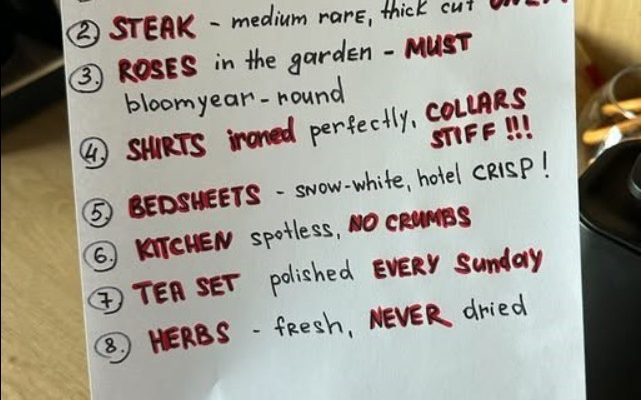 ② STEAK - medium rare, thick cut
③. ROSES in the garden - MUST
bloomyear-round
④. SHIRTS ironed perfectly, COLLARS
STIFF !!!
⑤. BEDSHEETS - snow-white, hotel CRISP!
⑥. KITCHEN spotless, NO CRUMBS
⑦ TEA SET polished EVERY Sunday
⑧. HERBS - fresh, NEVER dried